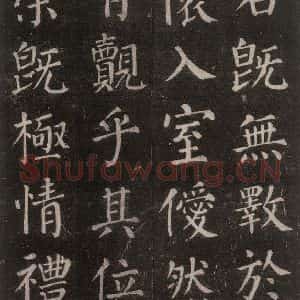 旣無斁於
入室僾然
有覿乎其位
旣極情禮
Shufawang.CN